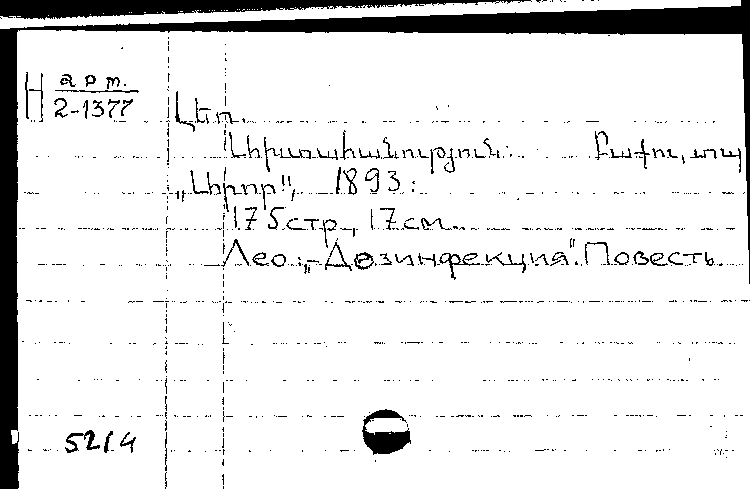 Н арт.
2-1377
Լեո.
Ախտահանություն: Բաքու, տպ
„Արոր", 1893:
175 стр., 17 см.
Лео.: „Дезинфекция". Повесть.
5214